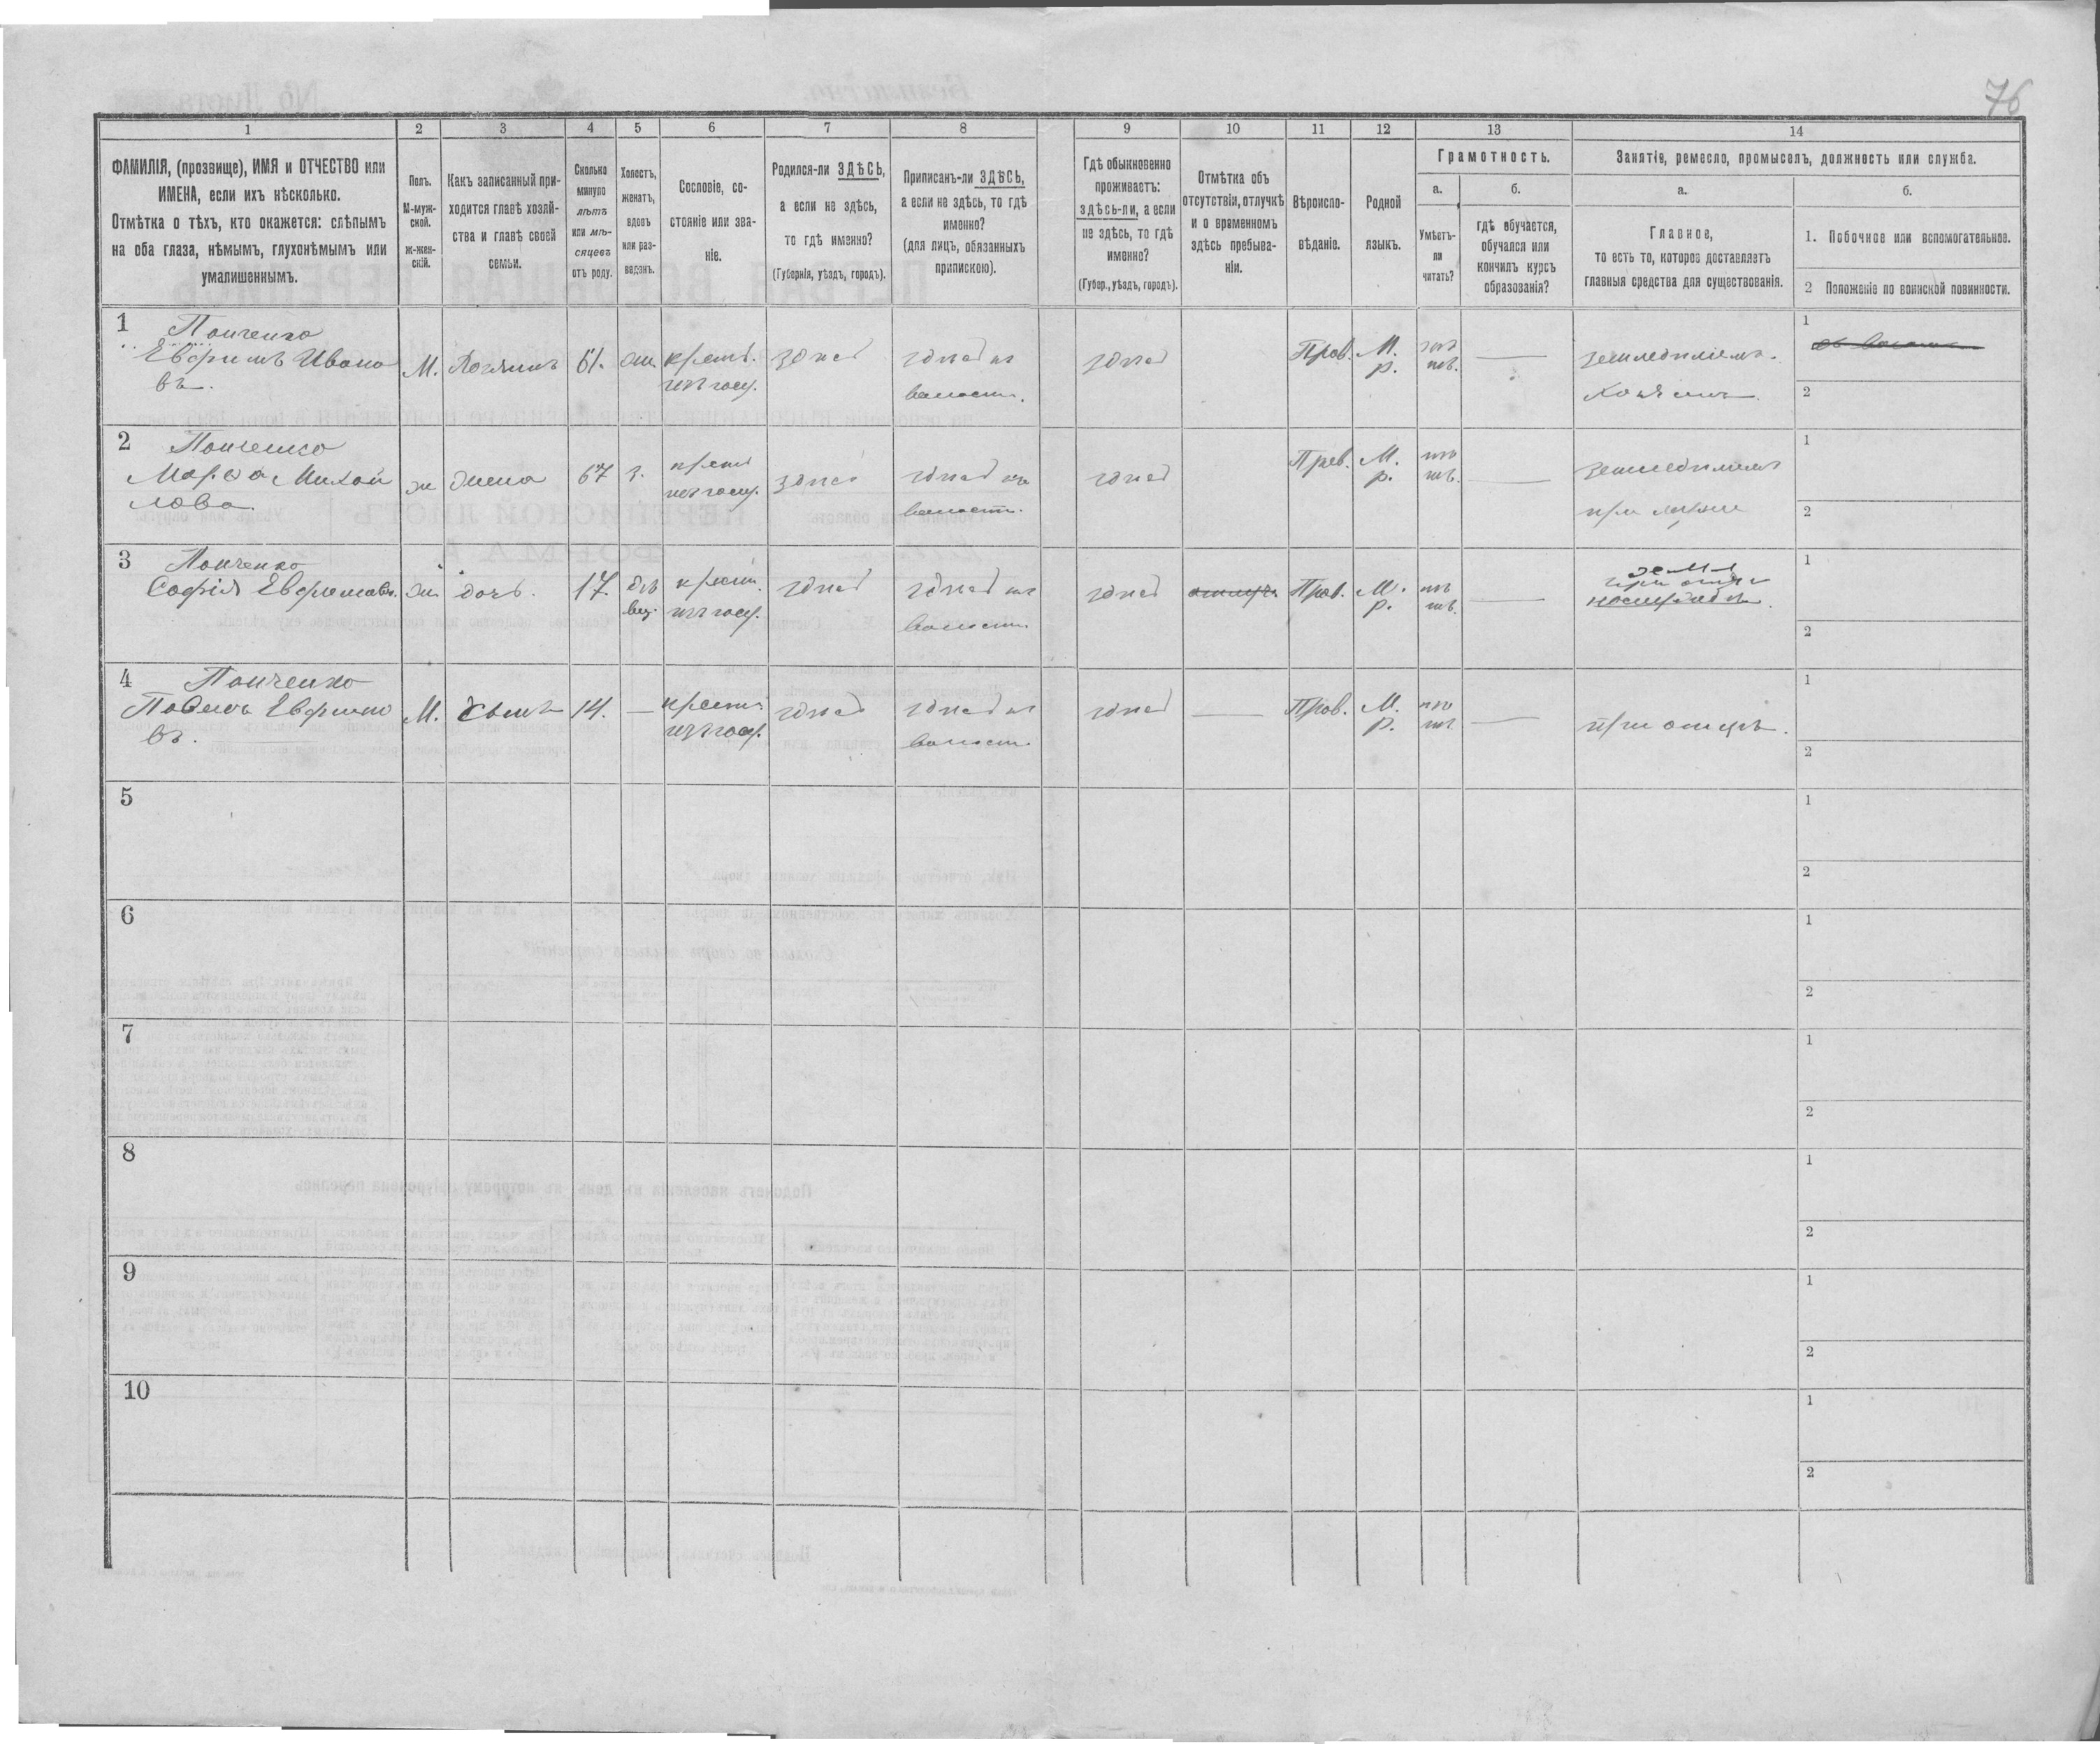 76
1 2 3 4 5 6 7 8 9 10 11 12 13 14
ФАМИЛІЯ, (прозвище), ИМЯ и ОТЧЕСТВО или
ИМЕНА, если ихъ нѣсколько.
Отмѣтка о тѣхъ, кто окажется: слѣпымъ
на оба глаза, нѣмымъ, глухонѣмымъ или
умалишеннымъ.
Полъ.
М-муж-
ской.
ж-жен-
скій.
Какъ записанный при-
ходится главѣ хозяй-
ства и главѣ своей
семьи.
Сколько
минуло
лѣтъ
или мѣ-
сяцевъ
отъ роду.
Холостъ,
женатъ,
вдовъ
или раз-
веденъ.
Сословіе, со-
стояніе или зва-
ніе.
Родился-ли ЗДѢСЬ,
а если не здѣсь,
то гдѣ именно?
(Губернія, уѣздъ, городъ).
Приписанъ-ли ЗДѢСЬ,
а если не здѣсь, то гдѣ
именно?
(для лицъ, обязанныхъ
припискою).
Гдѣ обыкновенно
проживаетъ:
здѣсь-ли, а если
не здѣсь, то гдѣ
именно?
(Губер., уѣздъ, городъ).
Отмѣтка объ
отсутствіи, отлучкѣ
и о временномъ
здѣсь пребыва-
ніи.
Вѣроиспо-
вѣданіе.
Родной
языкъ.
Грамотность.
а.
Умѣетъ-
ли
читать?
б.
гдѣ обучается,
обучался или
кончилъ курсъ
образованія?
Занятіе, ремесло, промыселъ, должность или служба.
а.
Главное,
то есть то, которое доставляетъ
главныя средства для существованія.
б.
1. Побочное или вспомогательное.
2 Положеніе по воинской повинности.
1
Панченко
Евфимъ Ивано
въ.
М.
Хозяинъ
61.
жн.
крест.
изъ госу.
здѣсь
здѣсь къ
волости.
здѣсь
Прав.
М.
р.
нѣ
тъ.
земледѣліемъ.
Хозяинъ
1
2
2
Панченко
Марѳа Михай
лова.
ж
жена
67
з.
крест
изъ госу.
здѣсь
здѣсь къ
волости.
здѣсь
Прав.
М.
р.
нѣ
тъ.
земледѣліемъ
при мужѣ
1
2
3
Панченко
Софія Евфимовн.
ж.
дочь.
17.
дѣ
виц.
крест.
изъ госу.
здѣсь
здѣсь къ
волости.
здѣсь
Прав.
М.
р.
нѣ
тъ.
1
2
4
Панченко
Павелъ Евфимо
въ.
М.
сынъ
14.
крест.
изъ госу.
здѣсь
здѣсь къ
волост.
здѣсь
Прав.
М.
р.
нѣ
тъ
при отцѣ.
1
2
5
1
2
6
1
2
7
1
2
8
1
2
9
1
2
10
1
2